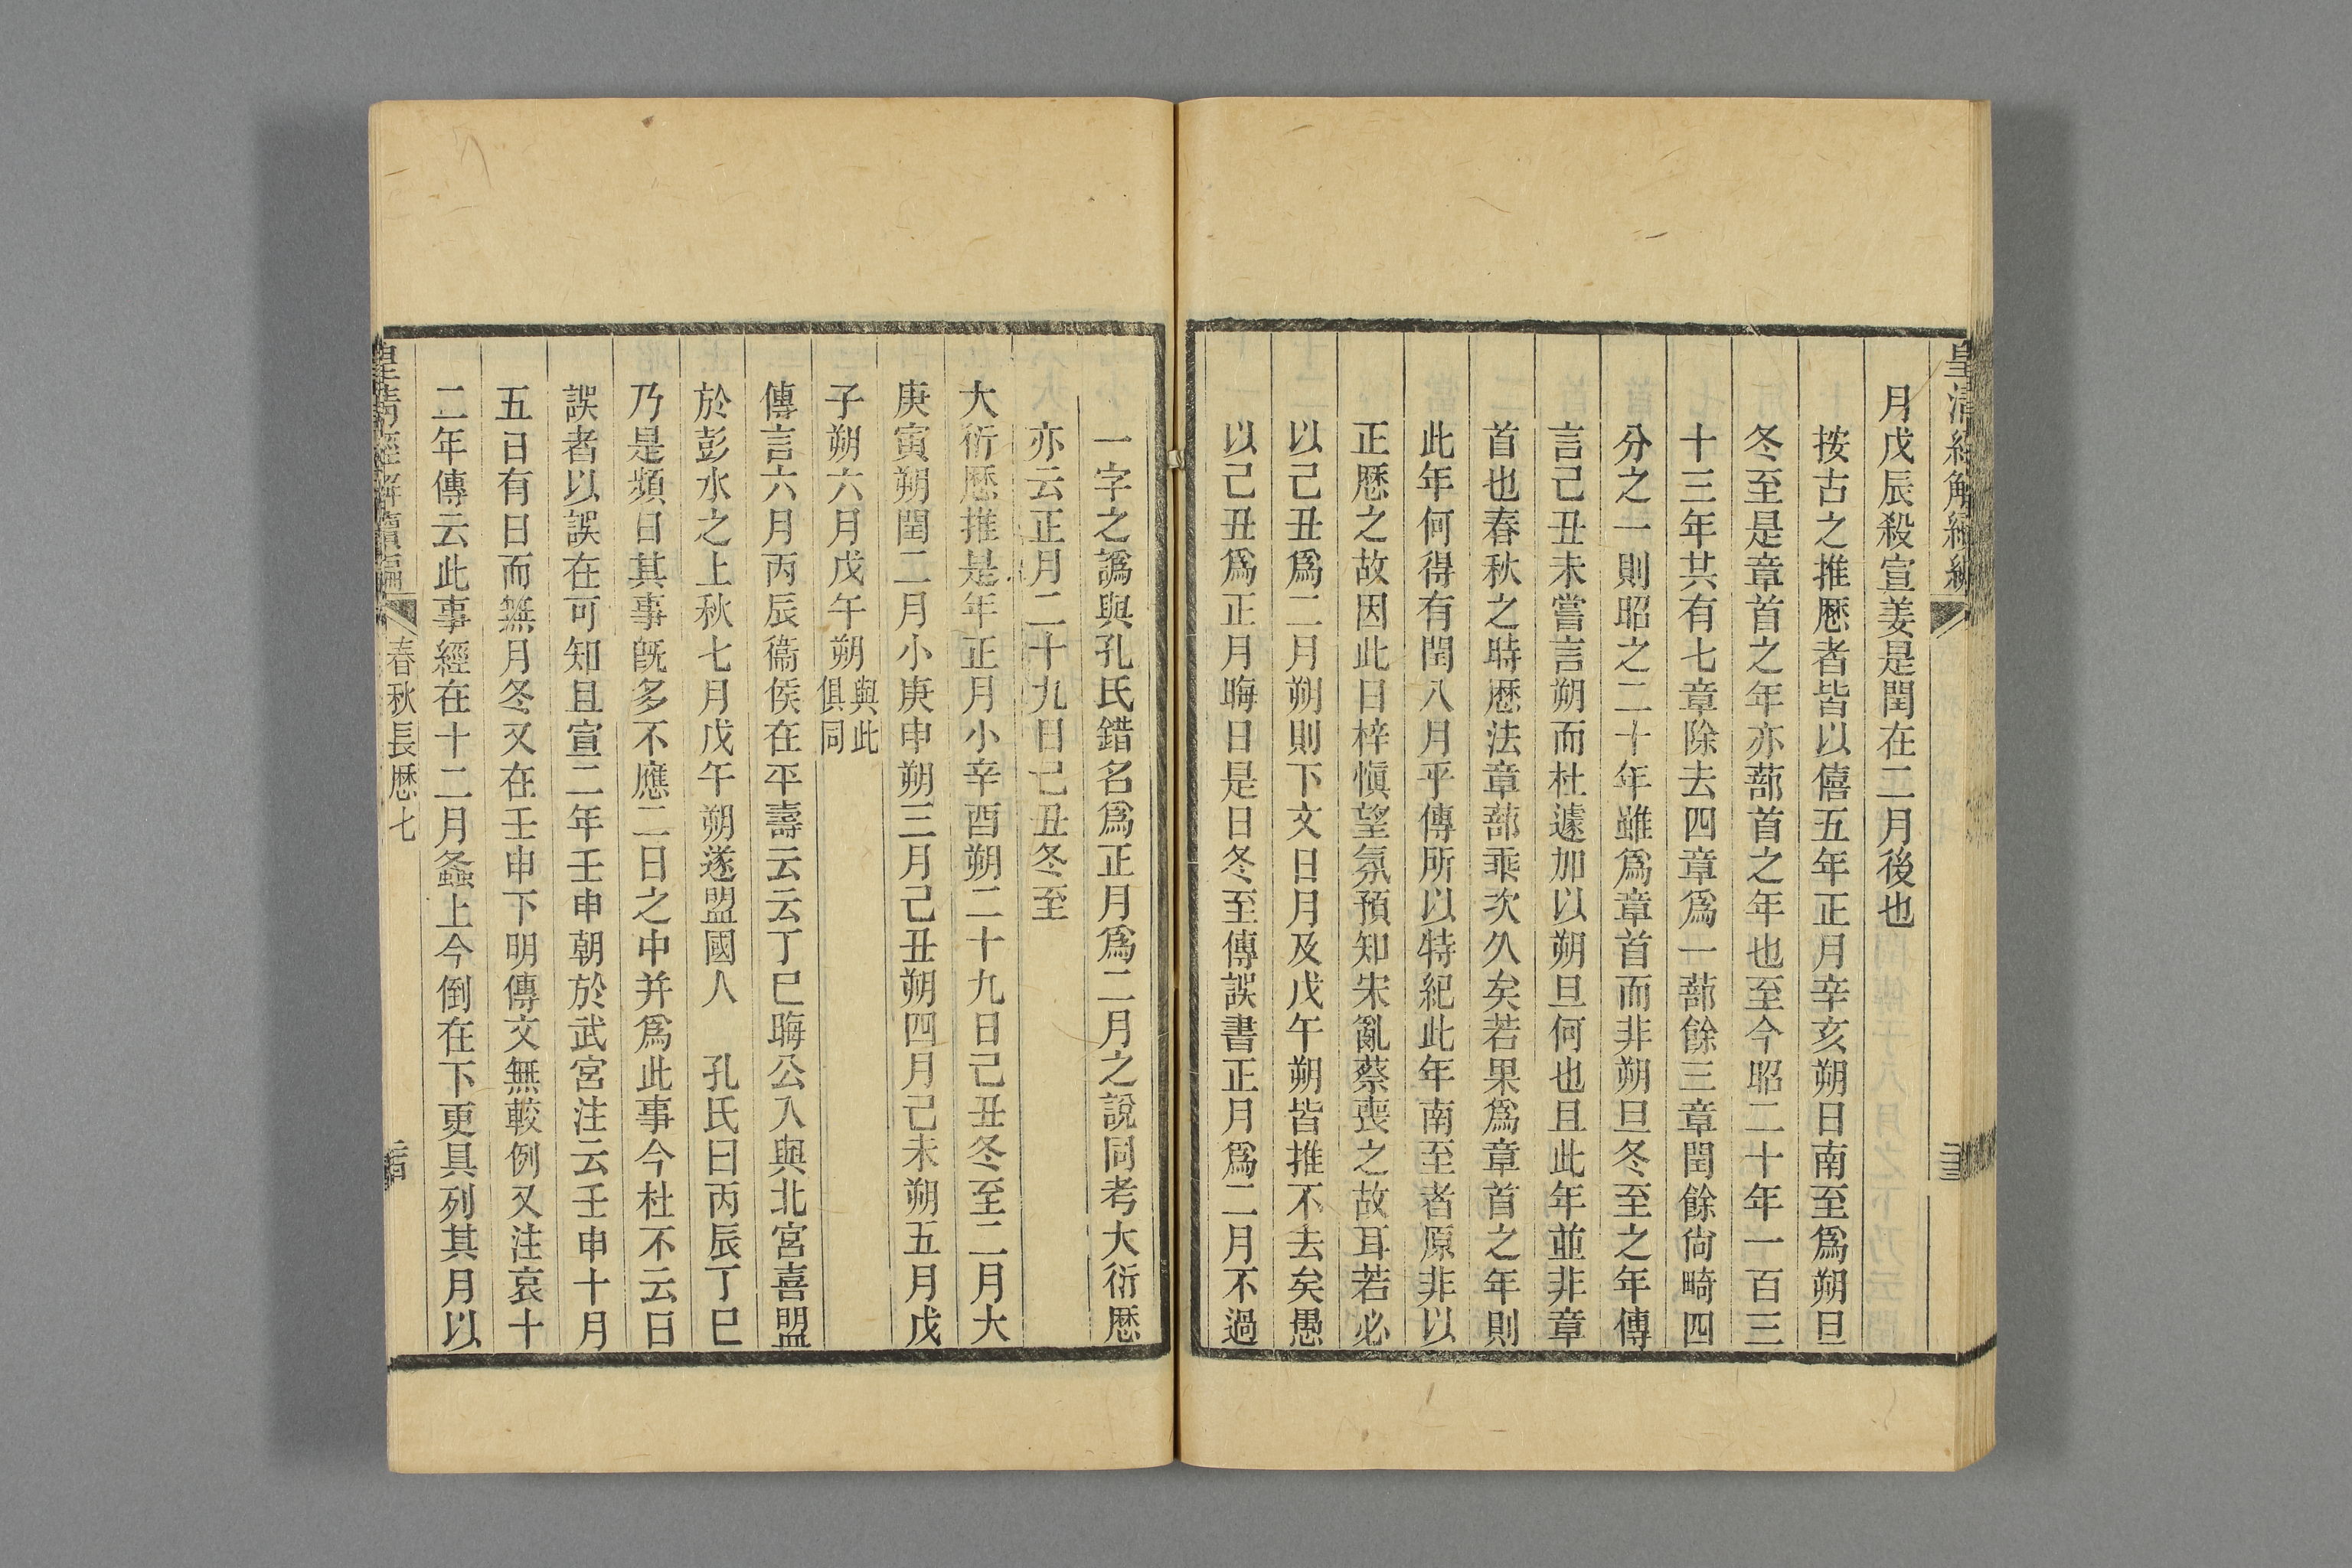 皇清經解續編
月戊辰殺宣姜是閏在二月後也
按古之推厯者皆以僖五年正月辛亥朔日南至爲朔旦
冬至是章首之年亦蔀首之年也至今昭二十年一百三
十三年其有七章除去四章爲一蔀餘三章閏餘尙畸四
分之一則昭之二十年雖爲章首而非朔旦冬至之年傳
言己丑未嘗言朔而杜遽加以朔旦何也且此年並非章
首也春秋之時厯法章蔀乖次久矣若果爲章首之年則
此年何得有閏八月乎傳所以特紀此年南至者原非以
正厯之故因此日梓愼望氛預知宋亂蔡喪之故耳若必
以己丑爲二月朔則下文日月及戊午朔皆推不去矣愚
以己丑爲正月晦日是日冬至傳誤書正月爲二月不過
一字之譌與孔氏錯名爲正月爲二月之說同考大衍厯
亦云正月二十九日己丑冬至
大衍厯推是年正月小辛酉朔二十九日己丑冬至二月大
庚寅朔閏二月小庚申朔三月己丑朔四月己未朔五月戊
子朔六月戊午朔與此俱同
傳言六月丙辰衞侯在平壽云云丁巳晦公入與北宮喜盟
於彭水之上秋七月戊午朔遂盟國人　孔氏曰丙辰丁巳
乃是頻日其事旣多不應二日之中并爲此事今杜不云日
誤者以誤在可知且宣二年壬申朝於武宮注云壬申十月
五日有日而無月冬又在壬申下明傳文無較例又注哀十
二年傳云此事經在十二月螽上今倒在下更具列其月以
皇清經解續編
春秋長厯七